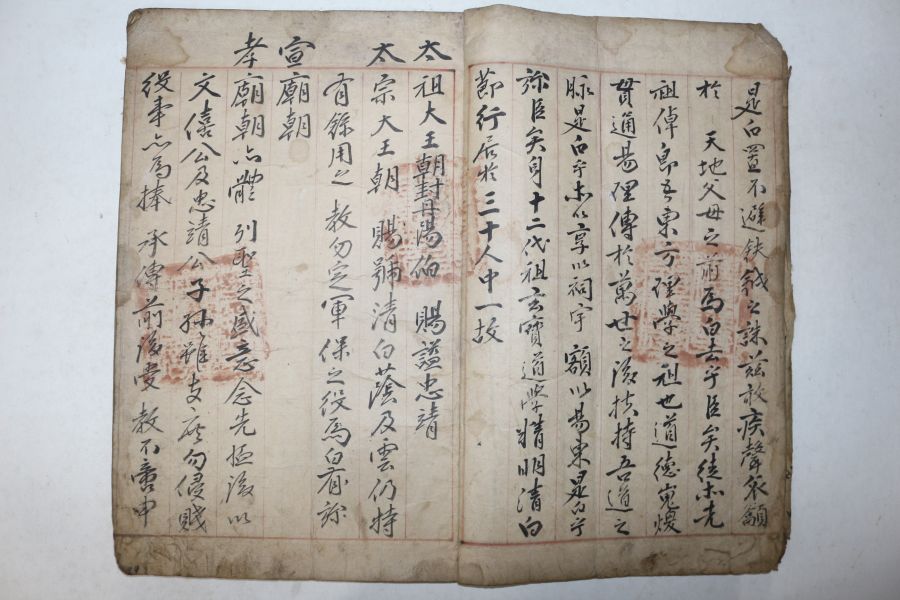 是白置不避鈇鉞之誅玆敢疾聲哀籲
於 天地父母之前爲白去乎臣矣徒等先
祖倬卽吾東方理學之祖也道德嵬煥
貫通易理傳於萬世之後扶持吾道之
脉是白乎等以享以祠宇 額以易東是白乎
弥臣矣身十二代祖玄寶道學精明清白
節行居於三十人中一故
太祖大王朝封丹陽伯 賜謚忠靖
太宗大王朝 賜號清白蔭及雲仍特
有錄用之 敎勿定軍保之役爲白有旀
宣廟朝
孝廟朝亦體 列聖之盛意念先恤後以
文僖公及忠靖公子孫雖支庶勿侵賤
役事亦爲捧 承傳前後受 敎不啻申